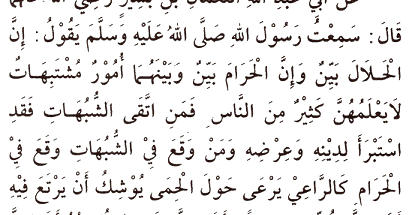 عَنْ أَبِي عَبْدِ اللهِ النُّعْمَانِ بْنِ بَشِيْرٍ رَضِيَ اللهُ عَنْهُمَا
قَالَ: سَمِعْتُ رَسُوْلَ اللهِ صَلَّى اللهُ عَلَيْهِ وَسَلَّمَ يَقُوْلُ: إِنَّ
الْحَلَالَ بَيِّنٌ وَإِنَّ الْحَرَامَ بَيِّنٌ وَبَيْنَهُمَا أُمُوْرٌ مُشْتَبِهَاتٌ
لَايَعْلَمُهُنَّ كَثِيْرٌ مِنَ النَّاسِ فَمَنِ اتَّقَى الشُّبُهَاتِ فَقَدِ
اسْتَبْرَأَ لِدِيْنِهِ وَعِرْضِهِ وَمَنْ وَقَعَ فِيْ الشُّبُهَاتِ وَقَعَ فِيْ
الْحَرَامِ كَالرَّاعِيْ يَرْعَى حَوْلَ الْحِمَى يُوْشِكُ أَنْ يَرْتَعَ فِيْهِ